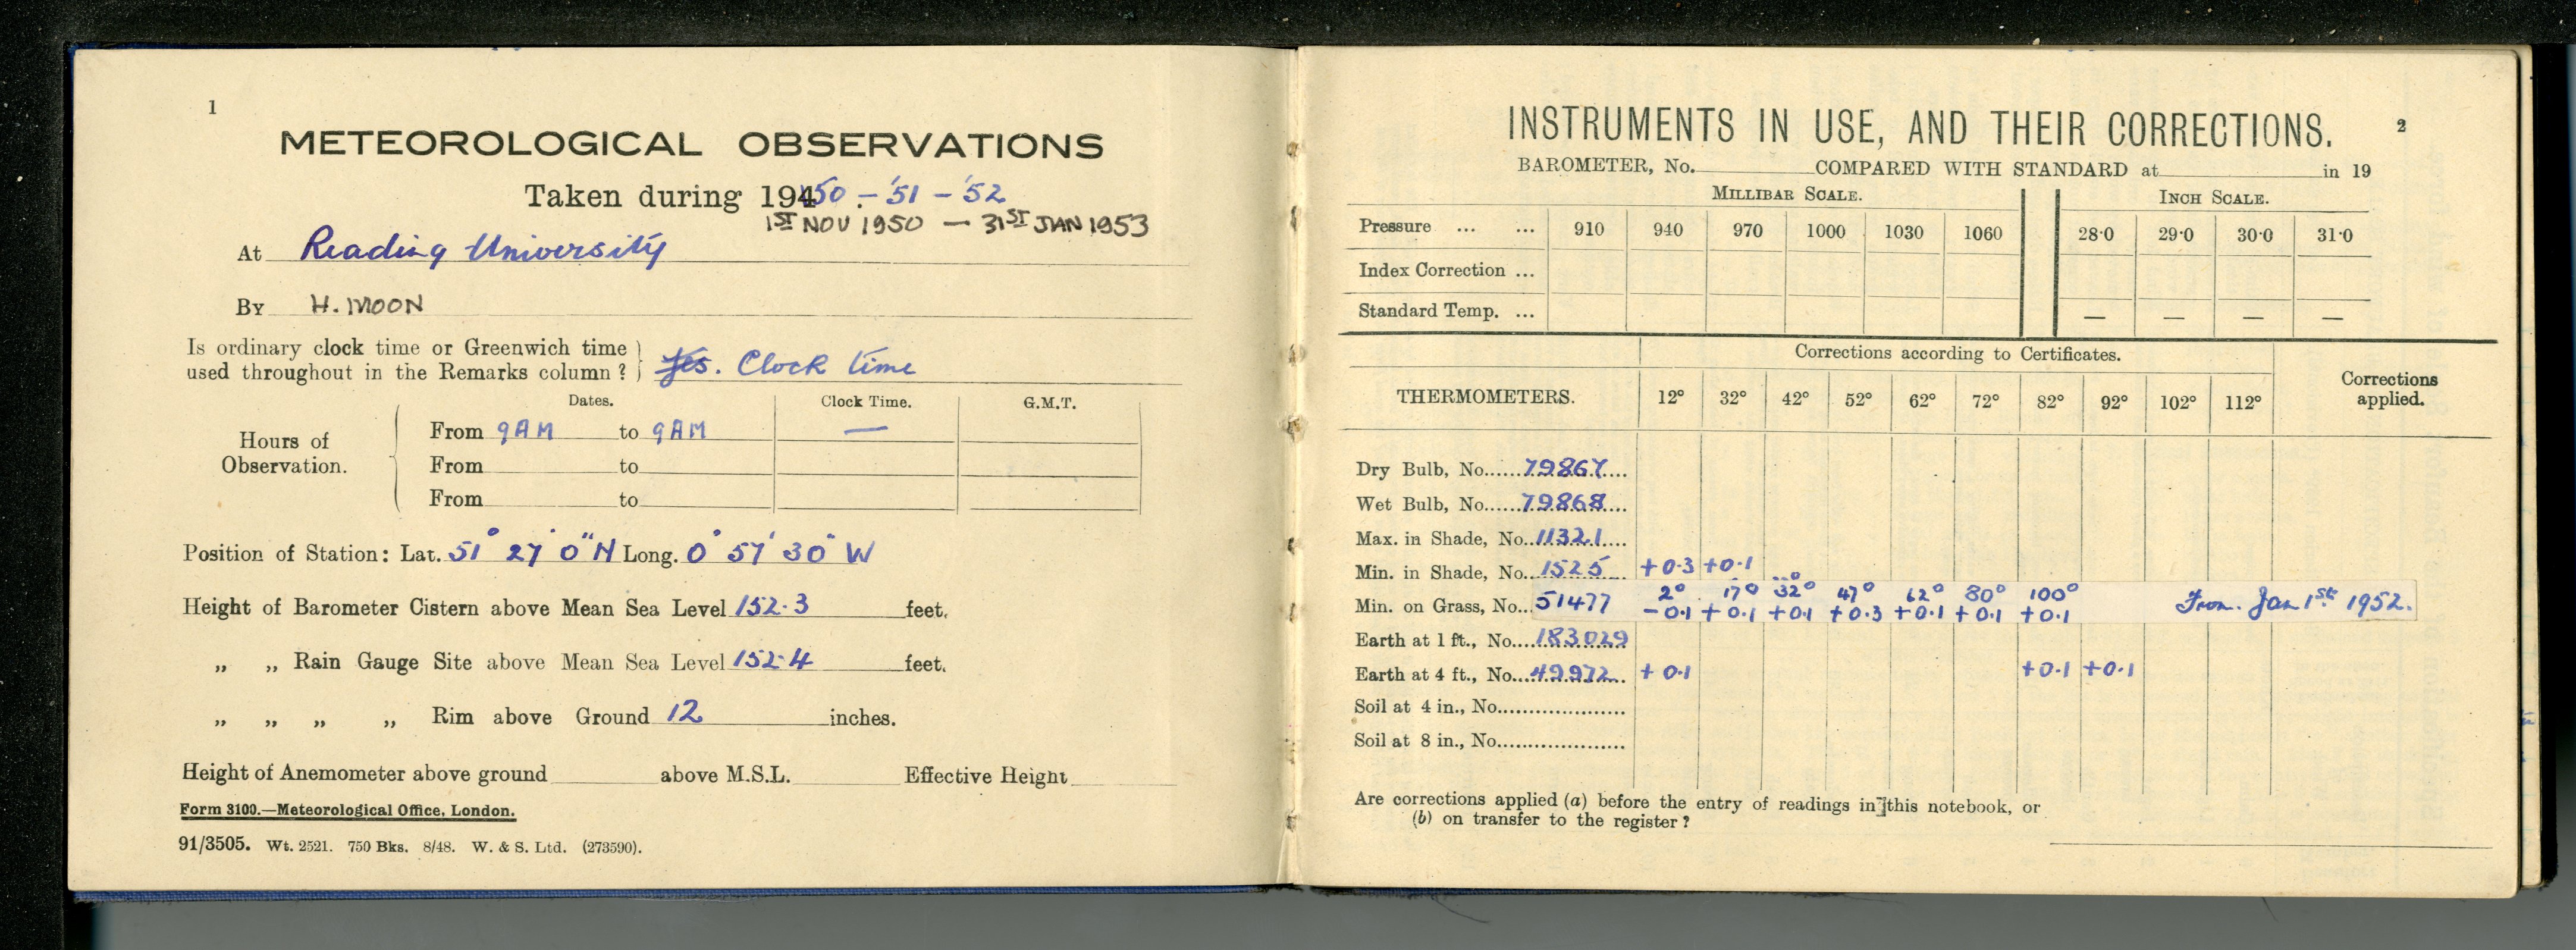 1
METEOROLOGICAL OBSERVATIONS
Taken during 194 50 - '51 - '52
1ST NOV 1950 — 31ST JAN 1953
At Reading University
By H. MOON
Is ordinary clock time or Greenwich time
used throughout in the Remarks column? } Yes. Clock time
Dates. Clock Time. G.M.T.
Hours of Observation.
From 9AM to 9AM —
From to
From to
Position of Station: Lat. 51° 27' 0" N Long. 0° 57' 30" W
Height of Barometer Cistern above Mean Sea Level 152.3 feet.
„ „ Rain Gauge Site above Mean Sea Level 152.4 feet.
„ „ „ „ Rim above Ground 12 inches.
Height of Anemometer above ground above M.S.L. Effective Height
Form 3100.—Meteorological Office, London.
91/3505. Wt. 2521. 750 Bks. 8/48. W. & S. Ltd. (273590).
INSTRUMENTS IN USE, AND THEIR CORRECTIONS. 2
BAROMETER, No. COMPARED WITH STANDARD at in 19
MILLIBAR SCALE. INCH SCALE.
Pressure ... ... 910 940 970 1000 1030 1060 28·0 29·0 30·0 31·0
Index Correction ...
Standard Temp. ... — — — —
Corrections according to Certificates.
THERMOMETERS. 12° 32° 42° 52° 62° 72° 82° 92° 102° 112° Corrections applied.
Dry Bulb, No. 79867
Wet Bulb, No. 79868
Max. in Shade, No. 11321
Min. in Shade, No. 1525 +0.3 +0.1
2° 17° 32° 47° 62° 80° 100°
Min. on Grass, No. 51477 -0.1 +0.1 +0.1 +0.3 +0.1 +0.1 +0.1 From. Jan 1st 1952.
Earth at 1 ft., No. 183029
Earth at 4 ft., No. 49972 +0.1 +0.1 +0.1
Soil at 4 in., No.
Soil at 8 in., No.
Are corrections applied (a) before the entry of readings in this notebook, or
(b) on transfer to the register?